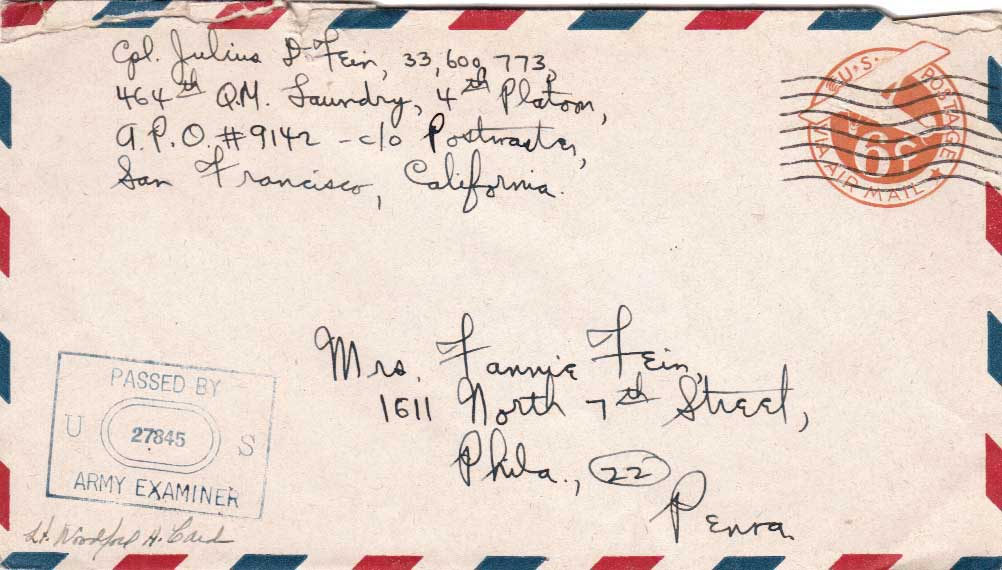 Cpl. Julius D Fein, 33,600,773,
464th Q.M. Laundry, 4th Platoon,
A.P.O. #9142 - c/o Postmaster,
San Francisco, California.
U.S. POSTAGE
6¢
VIA AIR MAIL
Mrs. Fannie Fein,
1611 North 7th Street,
Phila., 22
Penna.
PASSED BY
U 27845 S
ARMY EXAMINER
Lt. Woodford H.